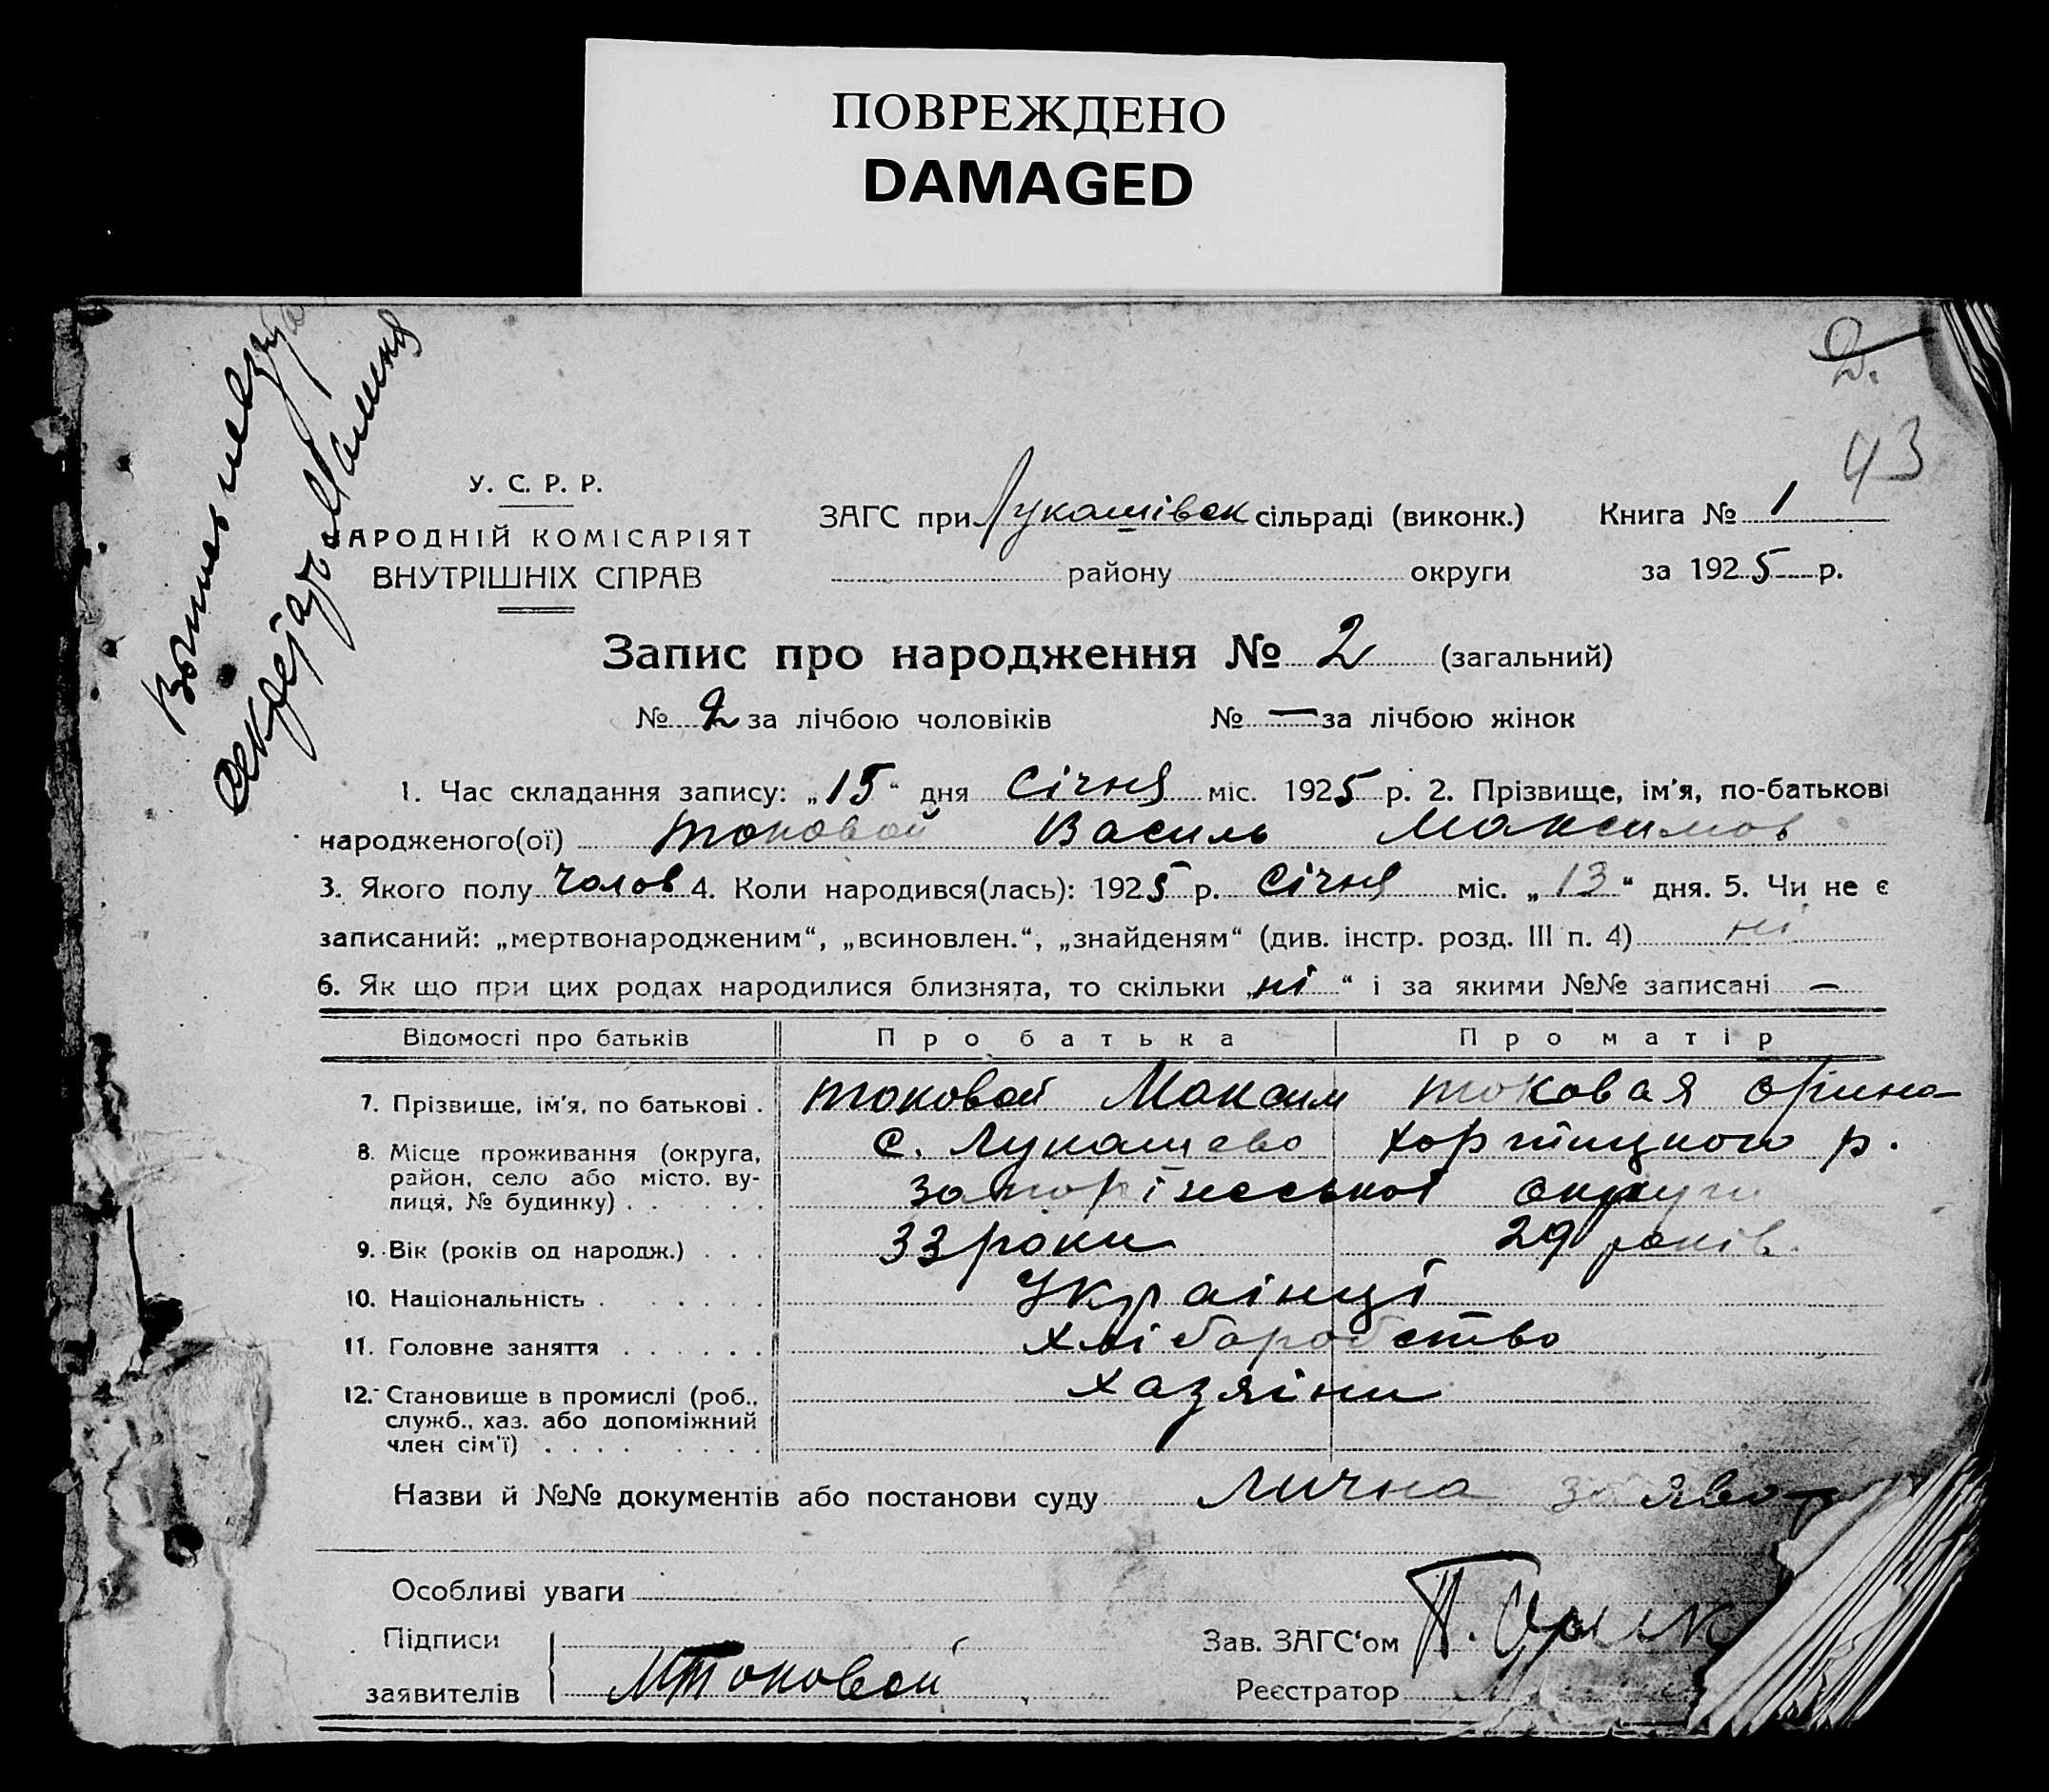 ПОВРЕЖДЕНО
DAMAGED
2.
43
У. С. Р. Р.
АРОДНІЙ КОМІСАРІЯТ
ВНУТРІШНІХ СПРАВ
ЗАГС при Лукашівск сільраді (виконк.) Книга № 1
району округи за 1925 р.
Запис про народження № 2 (загальний)
№ 2 за лічбою чоловіків № — за лічбою жінок
1. Час складання запису: „15“ дня Січня міс. 1925 р. 2. Прізвище, ім'я, по-батькові
народженого(ої) Токовой Василь Максимов
3. Якого полу Чолов 4. Коли народився(лась): 1925 р. Січня міс. „13“ дня. 5. Чи не є
записаний: „мертвонародженим“, „всиновлен.“, „знайденям“ (див. інстр. розд. III п. 4) ні
6. Як що при цих родах народилися близнята, то скільки „ні“ і за якими №№ записані —
Відомості про батьків Про батька Про матір
7. Прізвище, ім'я, по батькові . Токовой Максим Токовая Орина
8. Місце проживання (округа, с. Лукашево Хортицкого р.
район, село або місто, ву- Запоріжської округи
лиця, № будинку) . . . . . .
9. Вік (років од народж.) . . . 33 роки 29 років.
10. Національність . . . . . . Украінці
11. Головне заняття . . . . . . Хліборобство
12. Становище в промислі (роб., Хазяіни
служб., хаз. або допоміжний
член сім'ї) . . . . . . . .
Назви й №№ документів або постанови суду Лична заява
Особливі уваги
Підписи Зав. ЗАГС‘ом П.
заявителів МТоковой Реєстратор